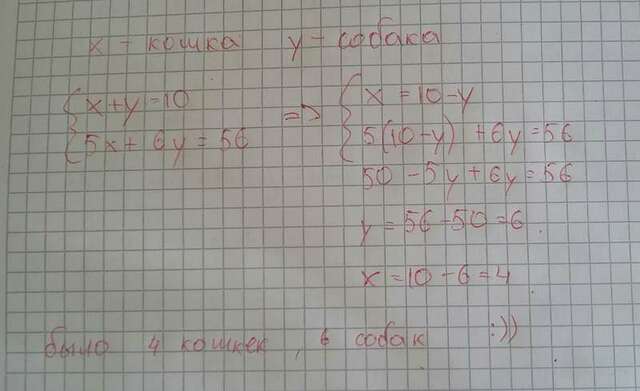 x - кошка y - собака
{x+y=10 => {x = 10-y
{5x+6y=56 {5(10-y) +6y=56
50 -5y+6y=56
y = 56-50=6
x =10-6=4
было 4 кошкек, 6 собак :))